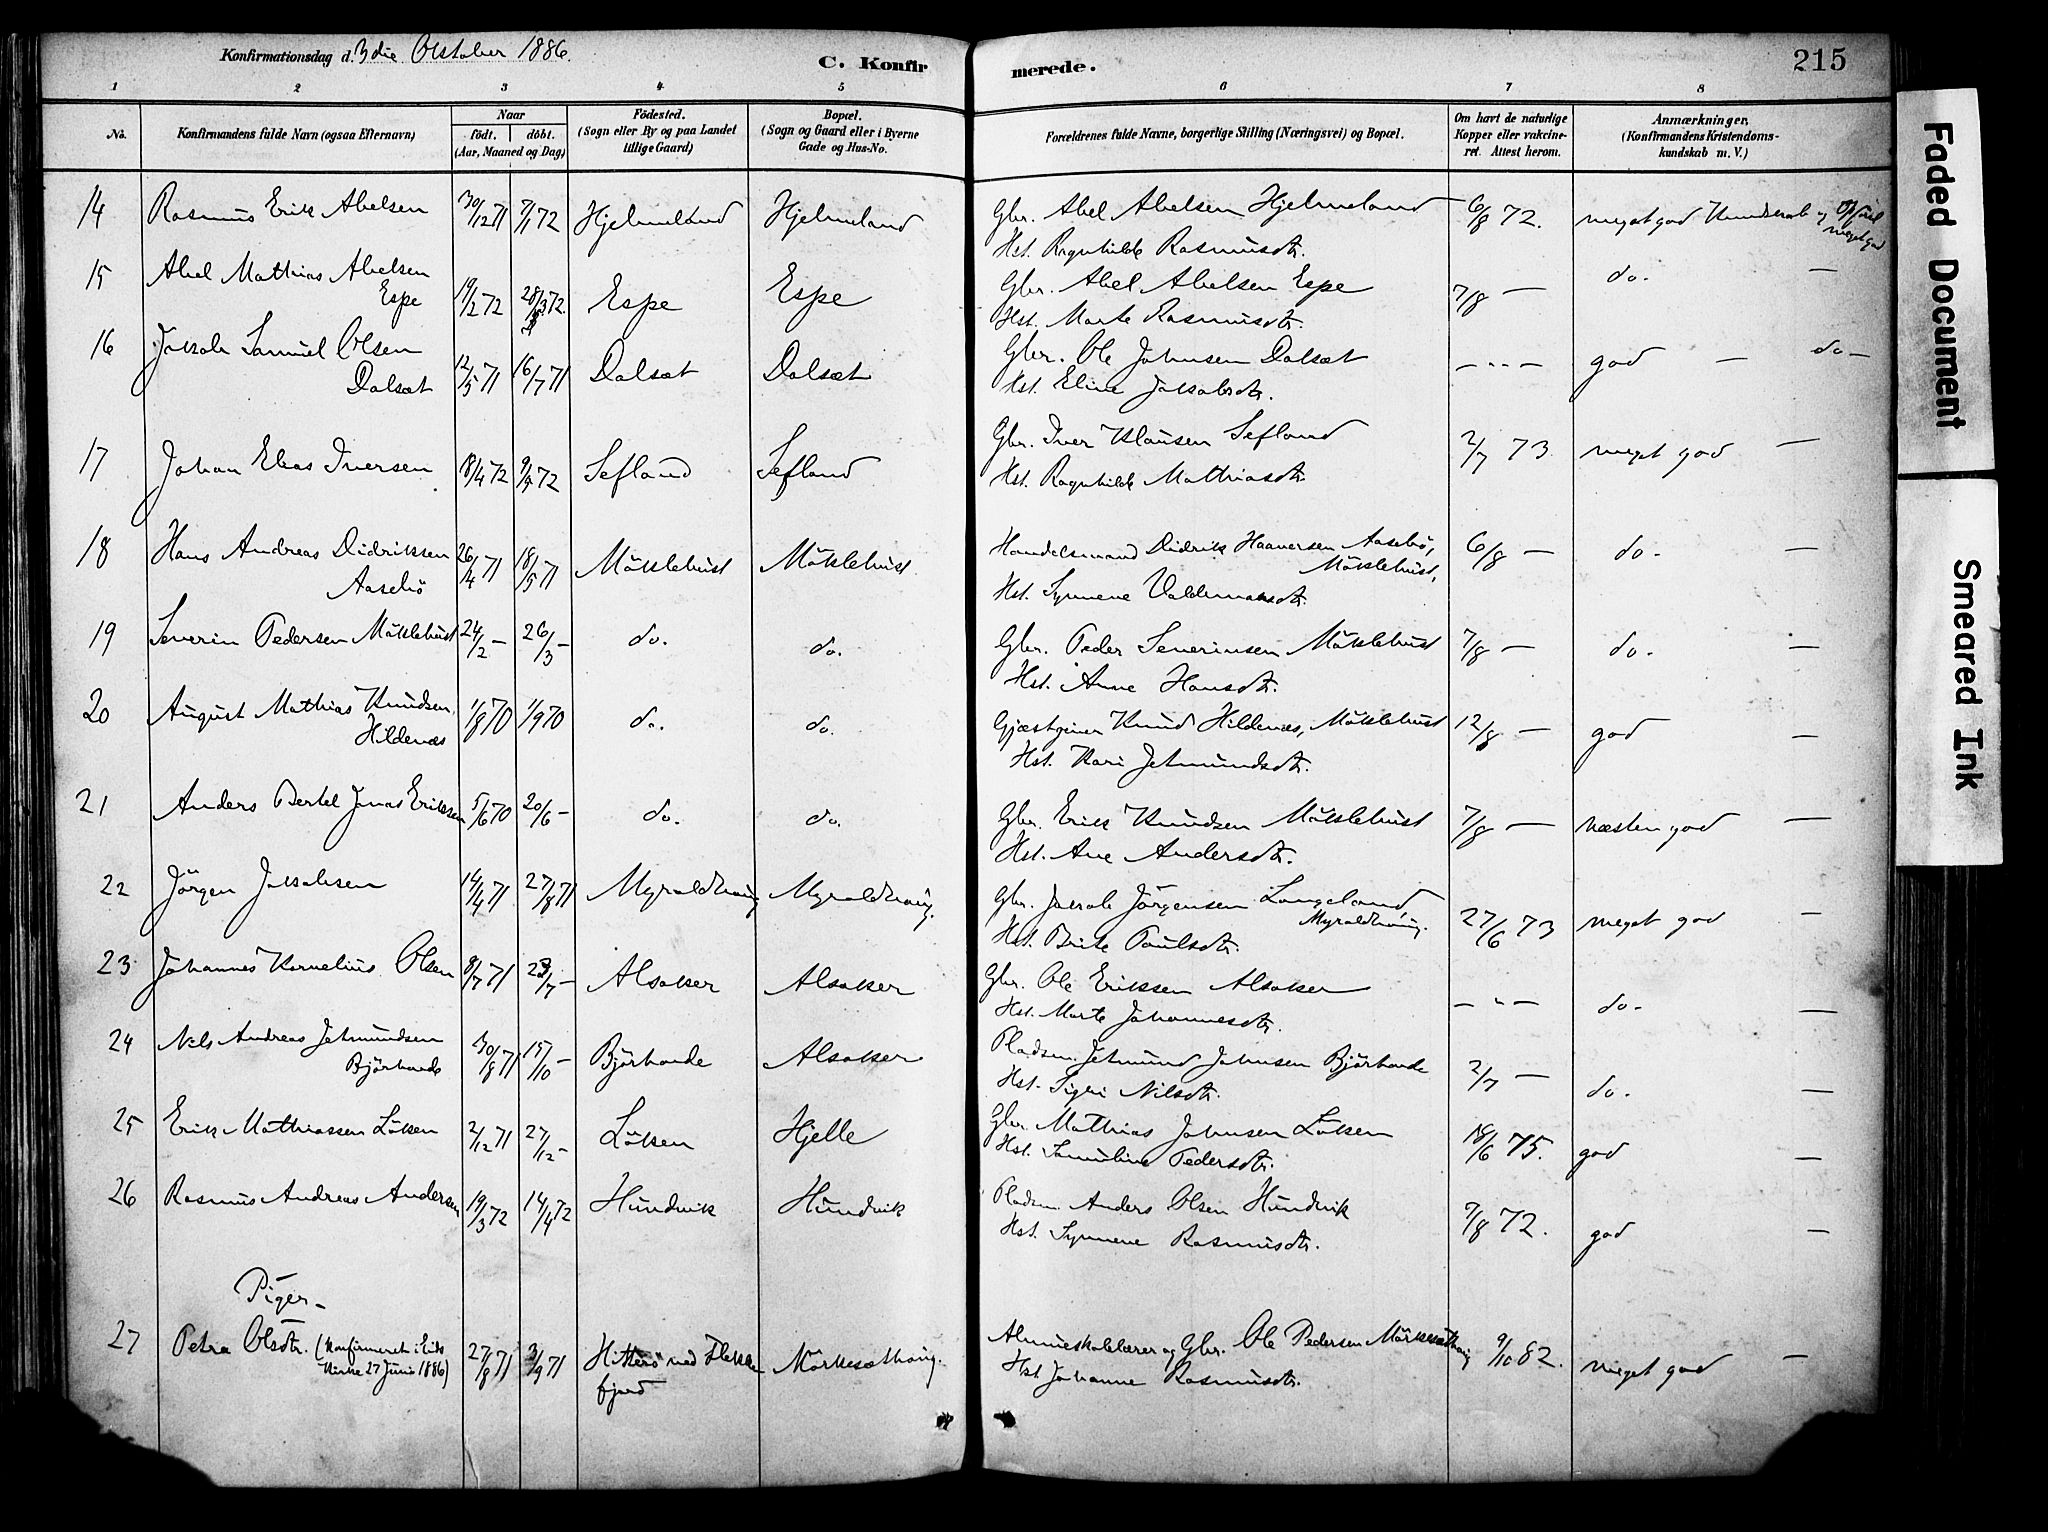 Konfirmationsdag d. 3die Oktober 1886.
C. Konfirmerede.
215
1 2 3 4 5 6 7 8
No.
Konfirmandens fulde Navn (ogsaa Efternavn)
Naar
født. døbt.
(Aar, Maaned og Dag)
Fødested.
(Sogn eller By og paa Landet
tillige Gaard)
Bopæl.
(Sogn og Gaard eller i Byerne
Gade og Hus-No.
Forældrenes fulde Navne, borgerlige Stilling (Næringsvei) og Bopæl.
Om havt de naturlige
Kopper eller vakcine-
ret. Attest herom.
Anmærkninger,
(Konfirmandens Kristendoms-
kundskab m. V.)
14 Rasmus Erik Abelsen 30/12 71 7/1 72 Hjelmeland Hjelmeland Gbr. Abel Abelsen Hjelmeland 6/8 72. meget god Kundskab og Flid
meget god
Hst. Ragnhilde Rasmusdtr.
15 Abel Mathias Abelsen
Espe 19/2 72 28/3 72. Espe Espe Gbr. Abel Abelsen Espe 7/8 — do. —
Hst. Marte Rasmusdtr.
16 Jakob Samuel Olsen
Dalsæt 12/5 71 16/7 71 Dalsæt Dalsæt Gbr. Ole Johnsen Dalsæt — " — god — do —
Hst. Eline Jakobsdtr.
17 Johan Elias Iversen 18/4 72 9/7 72 Sefland Sefland Gbr. Iver Klausen Sefland 2/7 73. meget god —
Hst. Ragnhilde Mathiasdtr.
18 Hans Andreas Didriksen
Aasebö 26/4 71 18/5 71 Möklebust Möklebust Handelsmand Didrik Haaversen Aasebö,
Möklebust, 6/8 — do. —
Hst. Synneve Valdemarsdtr.
19 Severin Pedersen Möklebust 24/2 — 26/3 — do. do. Gbr. Peder Severinsen Möklebust 7/8 — do. —
Hst. Anne Hansdtr.
20 August Mathias Knudsen
Hildenæs 1/8 70 1/9 70 do. do. Gjæstgiver Knud Hildenæs, Möklebust 12/8 — god —
Hst. Kari Jetmundsdtr.
21 Anders Bertel Jonas Eriksen 5/6 70 20/6 — do. do. Gbr. Erik Knudsen Möklebust 7/8 — næsten god —
Hst. Ane Andersdtr.
22 Jörgen Jakobsen 14/4 71 27/8 71 Myroldhoug Myroldhoug. Gbr. Jakob Jörgensen Langeland
Myroldhoug. 27/6 73 meget god —
Hst. Brite Paulsdtr.
23 Johannes Kornelius Olsen 8/7 71 23/7 — Alsaker Alsaker Gbr. Ole Eriksen Alsaker — " — do. —
Hst. Marte Johannesdtr.
24 Nils Andreas Jetmundsen
Björhovde 30/8 71 15/10 — Björhovde Alsaker Pladsm. Jetmund Johnsen Björhovde 2/7 — do. —
Hst. Sigri Nilsdtr.
25 Erik Mathiassen Löken 2/12 71 27/12 — Löken Hjelle Gbr. Mathias Johnsen Löken 18/6 75. god —
Hst. Samuline Pedersdtr.
26 Rasmus Andreas Andersen 19/3 72 14/4 72 Hundvik Hundvik Pladsm. Anders Olsen Hundvik 7/8 72. god —
Hst. Synneve Rasmusdtr.
Piger —
27 Petra Olsdtr. (konfirmeret i Eids
Kirke 27 Juni 1886) 27/8 71 3/9 71 Hitterö ved Flekke
fjord Mörkesæthoug. Almueskolelærer og Gbr. Ole Pedersen Mörkesæthoug 9/10 82. meget god —
Hst. Johanne Rasmusdtr.
Faded Document
Smeared Ink